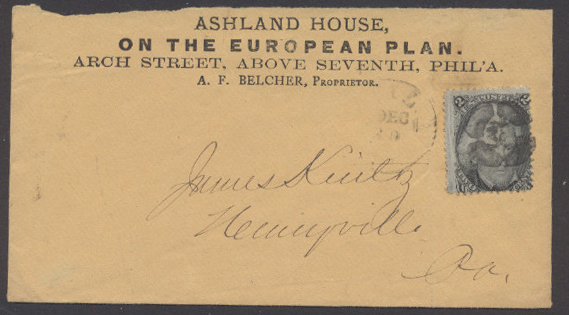 ASHLAND HOUSE,
ON THE EUROPEAN PLAN.
ARCH STREET, ABOVE SEVENTH, PHIL'A.
A. F. BELCHER, PROPRIETOR.
DEC
2 2
James Kintz
Henryville
Pa.